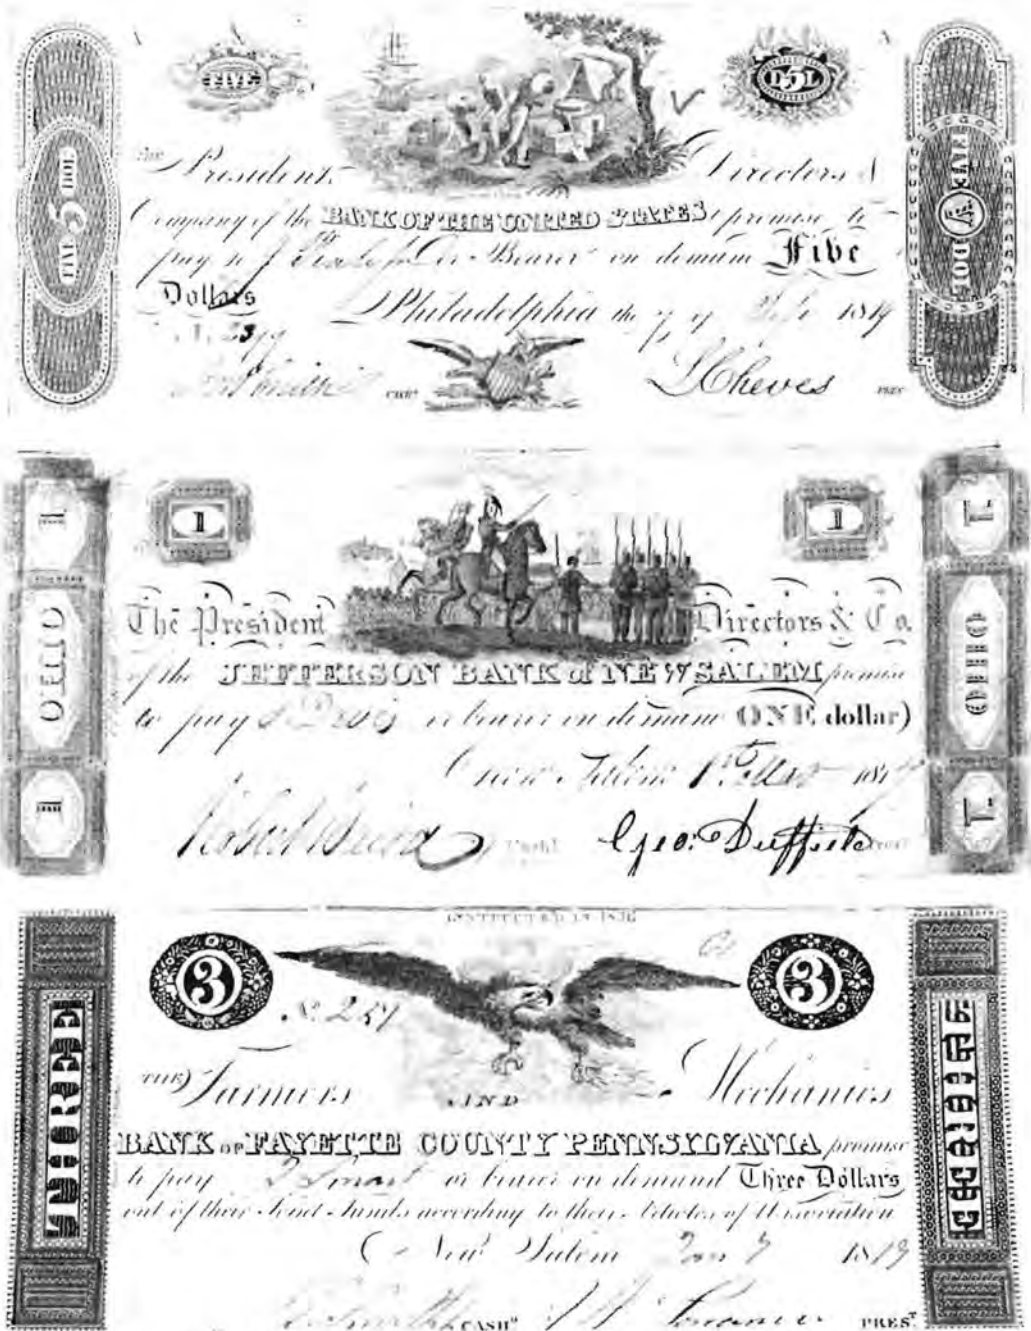 A A
FIVE D5L
FIVE 5 DOL
FIVE 5 DOL
THE President Directors &
Company of the BANK OF THE UNITED STATES promise to
pay to or Bearer on demand Five
Dollars Philadelphia the of 1819
CASHR L Cheves PREST
1 1
1 OHIO 1
1 OHIO 1
The President Directors & Co.
of the JEFFERSON BANK of NEW SALEM promise
to pay or bearer on demand ONE dollar)
(New Salem 18
Cashr Geo: Duffield
INSTITUTED IN 1816
3 3
No. 251
THREE
THREE
(THE) Farmers AND Mechanics
BANK OF FAYETTE COUNTY PENNSYLVANIA promise
to pay or bearer on demand Three Dollars
out of their Joint Funds according to their Articles of Association
(New Salem 1819
CASHR PREST